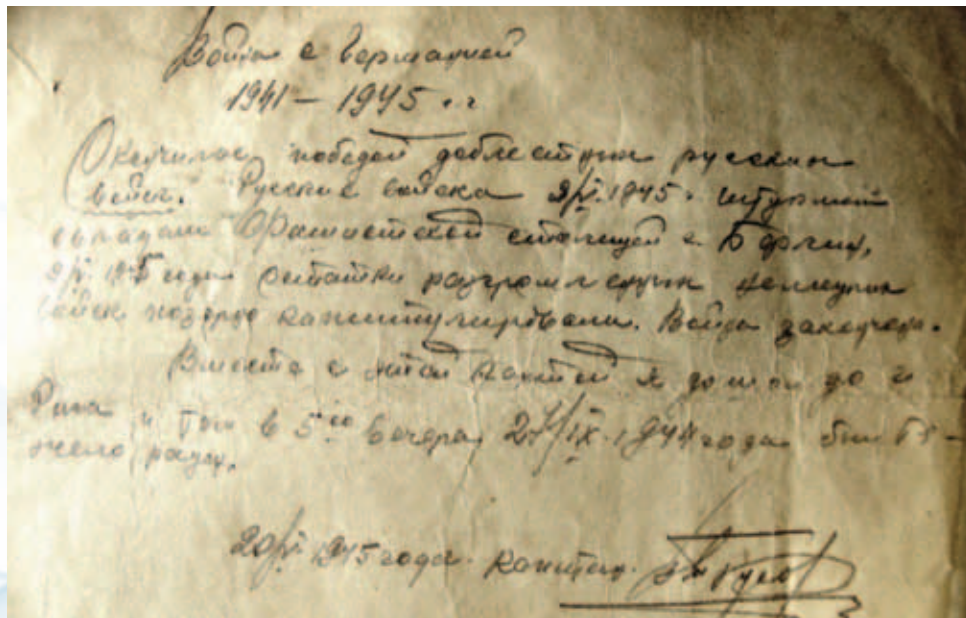 Война с Германией
1941 — 1945 г.г
Окончилась победой доблестных русских
войск. Русские войска 2/V. 1945 г. штурмом
овладели Фашистской столицей г. Берлин,
9/V. 1945 года остатки разгромленных немецких
войск позорно капитулировали. Война закончена.
Вместе с этой картой я дошел до г
Рига и там в 5 00 вечера 27/IX. 1944 года был тя-
жело ранен.
20/V. 1945 года. капитан